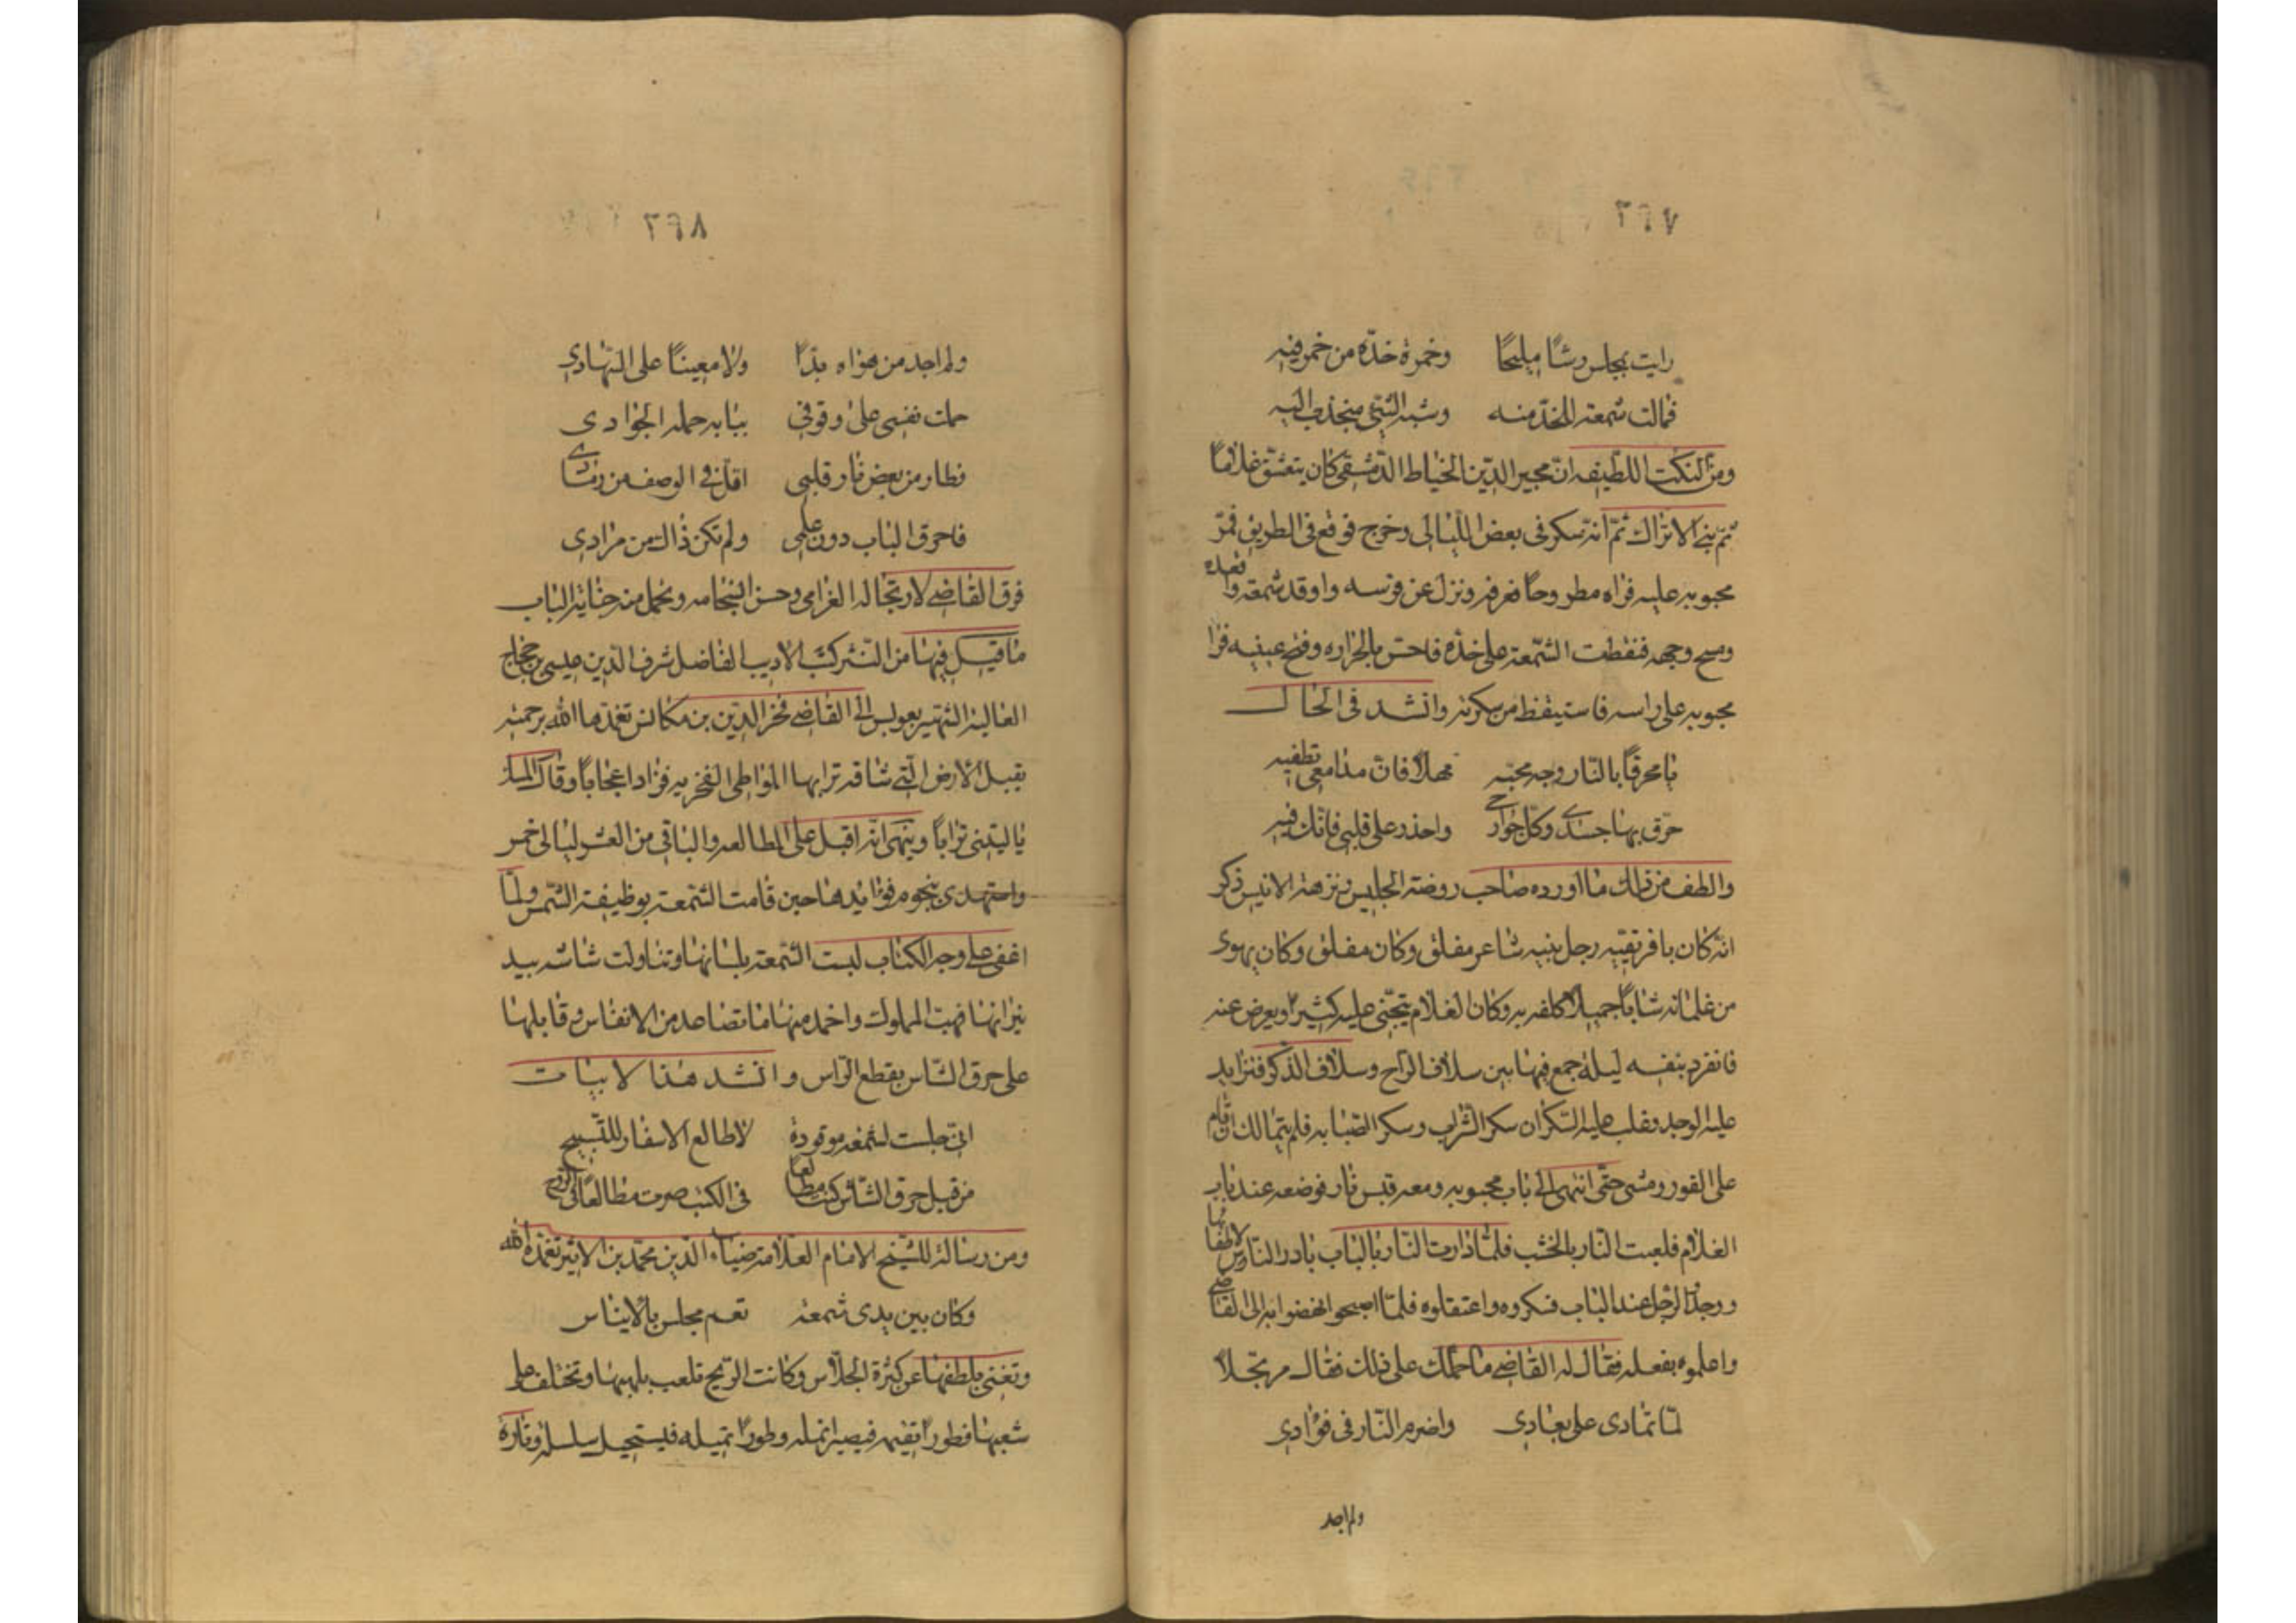 ٢٦٧
رايت بمجلس رشاً مليحاً وخمرة خدّه من خمر فيه
فمالت شمعة للخدّ منه وشبه الشئ منجذب اليه
ومن النكت اللطيفه انّ مجير الدّين الخياط الدّمشقى كان يتعشق غلاماً
ثمّ بنى الاتراك ثمّ انه سكر فى بعض الليالى وخرج فوقع فى الطريق فمرّ
محبوبه عليه فراه مطروحاً فعرفه ونزل عن فرسه واوقد شمعة واقعده
ومسح وجهه فنقطت الشّمعة على خدّه فاحسّ بالحراره وفتح عينيه فرا
محبوبه على راسه فاستيقظ من سكرته وانشد فى الحال
يا محرقاً بالنّار وجه محبّه مهلاً فانّ مدامعى تطفيه
حرّق بها جسدى وكلّ جوارحى واحذر على قلبى فانّك فيه
والطف من ذلك ما اورده صاحب روضة الجليس ونزهة الانيس ذكر
انه كان بافريقيّه رجل نبيه شاعر مفلق وكان مفلق وكان يهوى
من غلمانه شاباً جميلاً كلفه به وكان الغلام يتجنّى عليه كثيراً ويعرض عنه
فانفرد بنفسه ليلة جمع فيها بين سلاف الرّاح وسلاف الذّكر فتزايد
عليه الوجد وغلب عليه السّكران سكر الشّراب وسكر الصّبابه فلم يتمالك ان قام
على الفور ومشى حتّى انتهى الى باب محبوبه ومعه قبس نار فوضعه عند باب
الغلام فلعبت النّار بالخشب فلمّا دارت النّار بالباب بادر النّاس لاطفائها
ووجدوا الرّجل عند الباب فنكروه واعتقلوه فلمّا اصبحوا نهضوا به الى القاضى
واعلموه بفعله فقال له القاضى ما حملك على ذلك فقال مرتجلاً
لمّا تمادى على بعادى واضرم النّار فى فؤادى
ولم اجد
٢٦٨
ولم اجد من هواه بدّاً ولا معيناً على السّهادى
حملت نفسى على وقوفى ببابه حملة الجوادى
فطار من بعض نار قلبى اقلّ فى الوصف من زنادى
فاحرق الباب دون علمى ولم تكن ذاك من مرادى
فرق القاضى لارتجاله الغرامى وحسن انسجامه وتحمل منه جناية الباب
ما قيل فيها من النّثر كتب الاديب الفاضل شرف الدّين عيسى بن حجّاج
العالية الشهير بعويس الى القاضى فخر الدّين بن مكانس تغمّدهما الله برحمته
يقبل الارض الّتى شاقه ترابها المواطى الفخريه فزاد اعجاباً وقال
يا ليتنى تراباً وينهى انّه اقبل على المطالعه والباقى من العشر ليالى خمر
واستهدى بنجوم فوايدها حين قامت الشّمعة بوظيفة الشّمس ولمّا
اغفى على وجه الكتاب لبست الشّمعة بلسانها وتناولت شاشه بيد
نيرانها فهبّ المملوك واخمد منها ما تصاعد من الانفاس وقابلها
على حرق الشّاس بقطع الرّاس وانشد هذا الابيات
انى جلست لشمعة موقودة لاطالع الاسفار للتّسبيح
من قبل حرق الشّاش كنت مطالعاً فى الكتب صرت مطالعاً فى الرّوح
ومن رساله للشّيخ الامام العلامة ضياء الدّين محمّد بن الاثير تغمّده الله
وكان بين يدى شمعة تعم مجلس بالايناس
وتغنى بلطفها عن كثرة الجلاّس وكانت الرّيح تلعب بلهبها وتختلف على
شعبها فطوراً تقيمه فيصير انمله وطوراً تميله فيستحيل سلسله وتارة